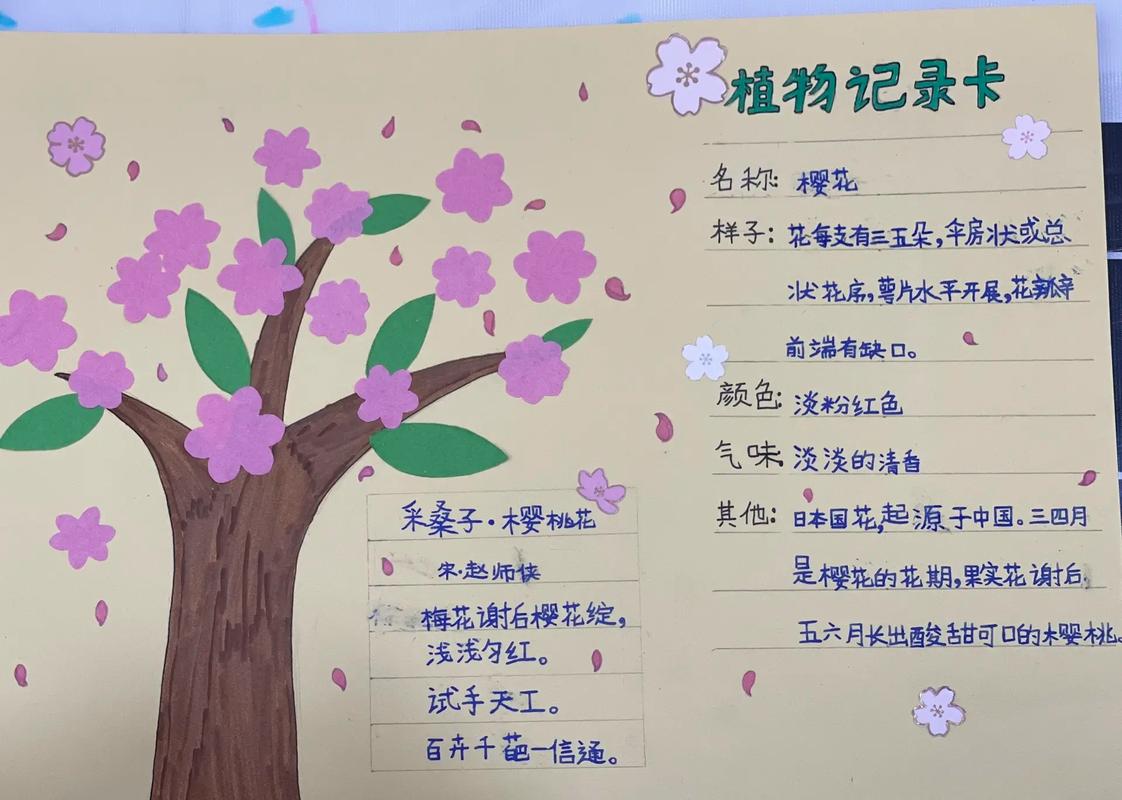 植物记录卡
名称: 樱花
样子: 花每支有三五朵,伞房状或总
状花序,萼片水平开展,花瓣
前端有缺口。
颜色: 淡粉红色
气味: 淡淡的清香
其他: 日本国花,起源于中国。三四月
是樱花的花期,果实花谢后,
五六月长出酸甜可口的樱桃。
采桑子·樱桃花
宋·赵师侠
梅花谢后樱花绽,
浅浅匀红。
试手天工。
百卉千葩一信通。